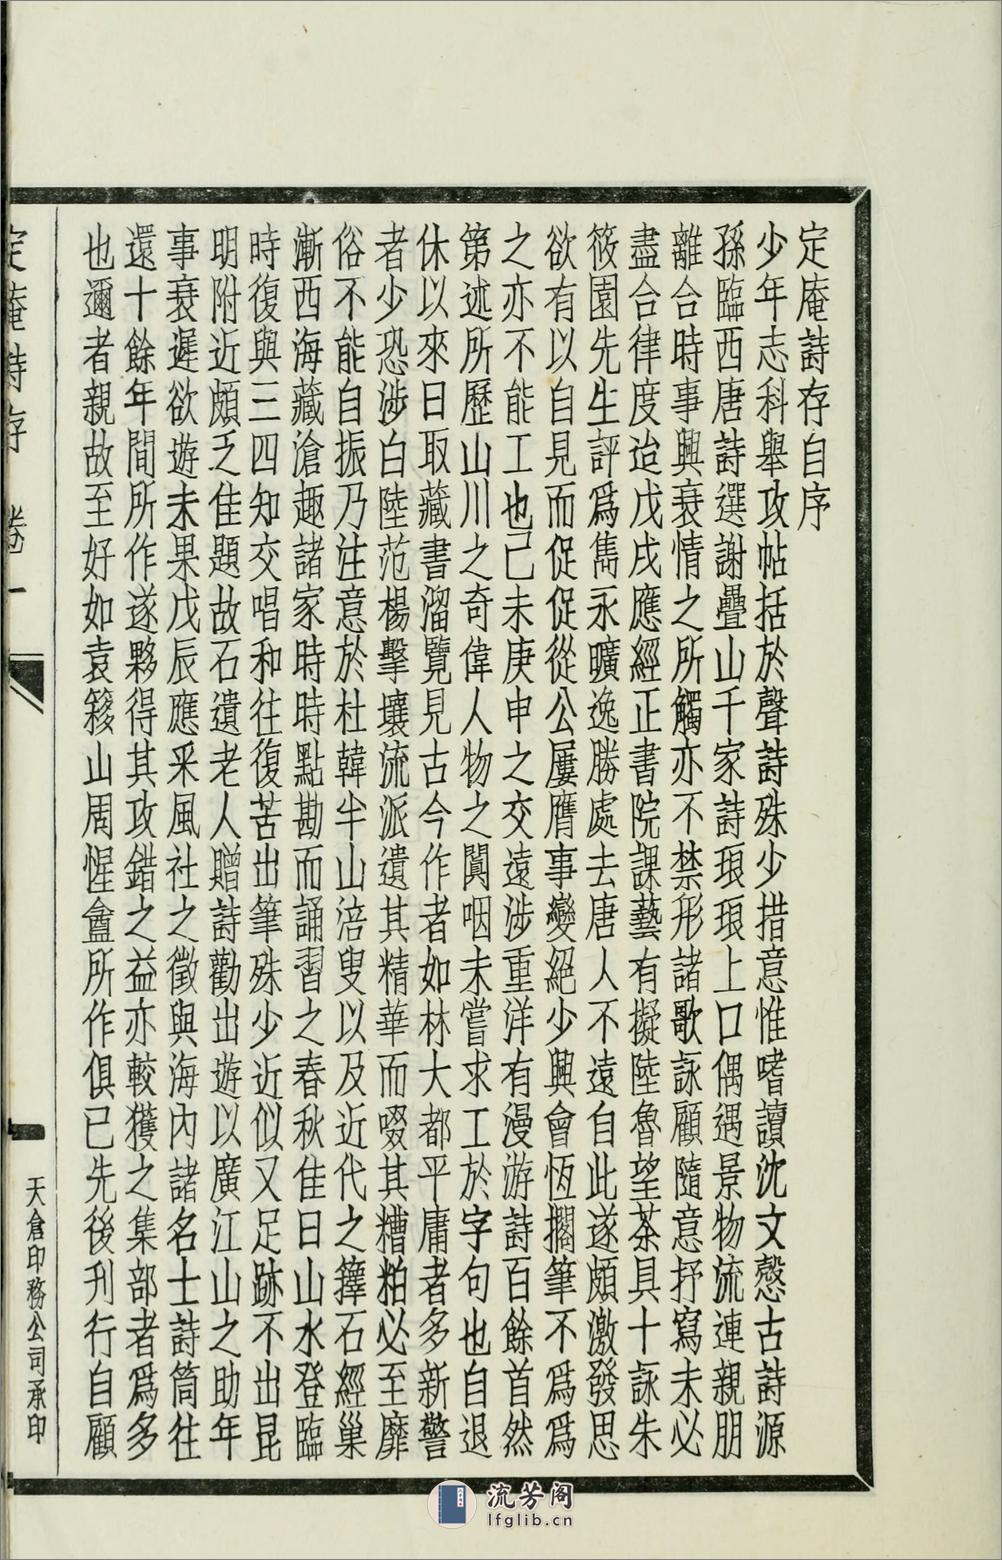 定庵詩存自序
少年志科舉攻帖括於聲詩殊少措意惟嗜讀沈文慤古詩源
孫臨西唐詩選謝疊山千家詩琅琅上口偶遇景物流連親朋
離合時事興衰情之所觸亦不禁形諸歌詠顧隨意抒寫未必
盡合律度迨戊戌應經正書院課藝有擬陸魯望茶具十詠朱
筱園先生評爲雋永曠逸勝處去唐人不遠自此遂頗激發思
欲有以自見而促促從公屢膺事變絕少興會恆擱筆不爲爲
之亦不能工也己未庚申之交遠涉重洋有漫游詩百餘首然
第述所歷山川之奇偉人物之闐咽未嘗求工於字句也自退
休以來日取藏書溜覽見古今作者如林大都平庸者多新警
者少恐涉白陸范楊擊壤流派遺其精華而啜其糟粕必至靡
俗不能自振乃注意於杜韓半山涪叟以及近代之籜石經巢
漸西海藏滄趣諸家時時點勘而誦習之春秋佳日山水登臨
時復與三四知交唱和往復苦出筆殊少近似又足跡不出昆
明附近頗乏佳題故石遺老人贈詩勸出遊以廣江山之助年
事衰遲欲遊未果戊辰應采風社之徵與海內諸名士詩筒往
還十餘年間所作遂夥得其攻錯之益亦較獲之集部者爲多
也邇者親故至好如袁籽山周惺盦所作俱已先後刋行自顧
定庵詩存 卷一
天倉印務公司承印
流芳阁
lfglib.cn